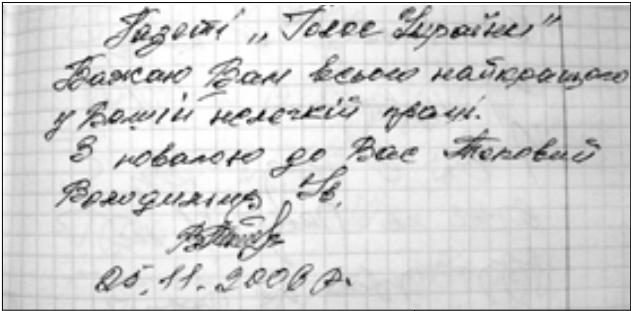 Газеті „Голос України”
Бажаю Вам всього найкращого
у Вашій нелегкій праці.
З повагою до Вас
Володимир Ів.
25.11.2006 р.